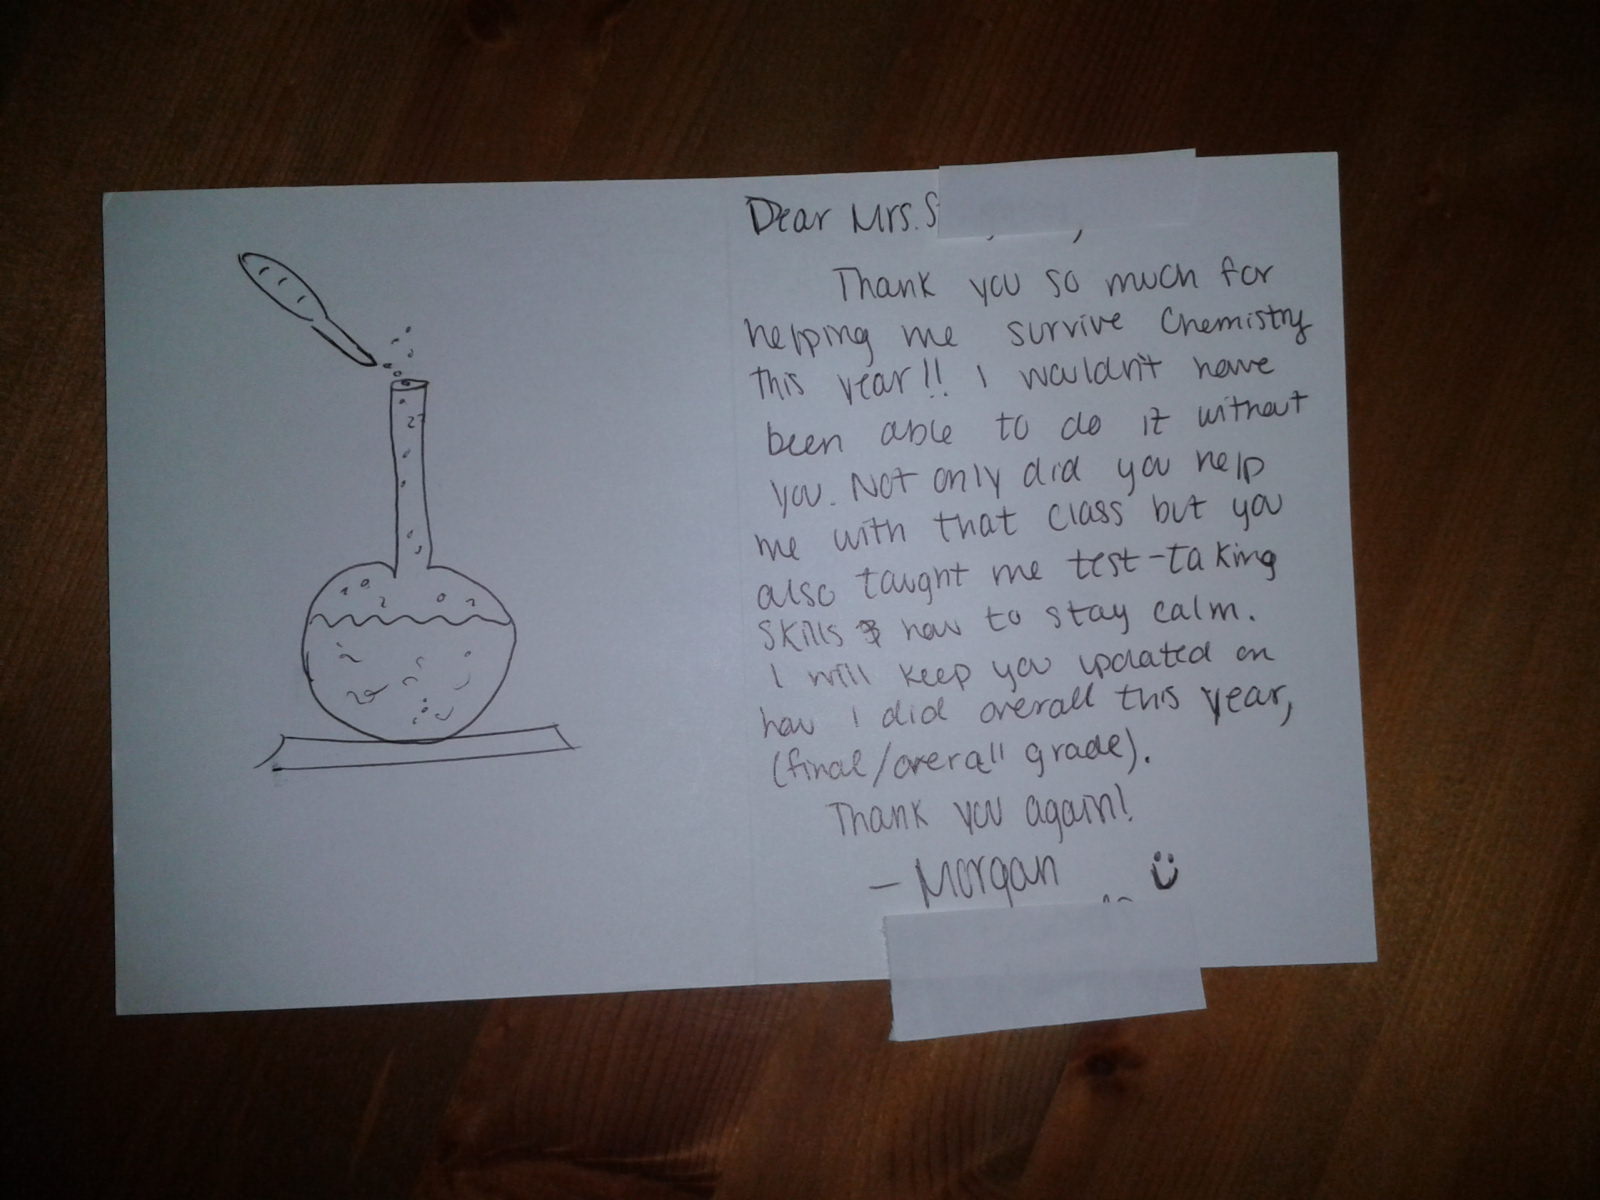 Dear Mrs. S
Thank you so much for
helping me survive Chemistry
this year!! I wouldn't have
been able to do it without
you. Not only did you help
me with that class but you
also taught me test-taking
skills & how to stay calm.
I will keep you updated on
how I did overall this year,
(final/overall grade).
Thank you again!
- Morgan